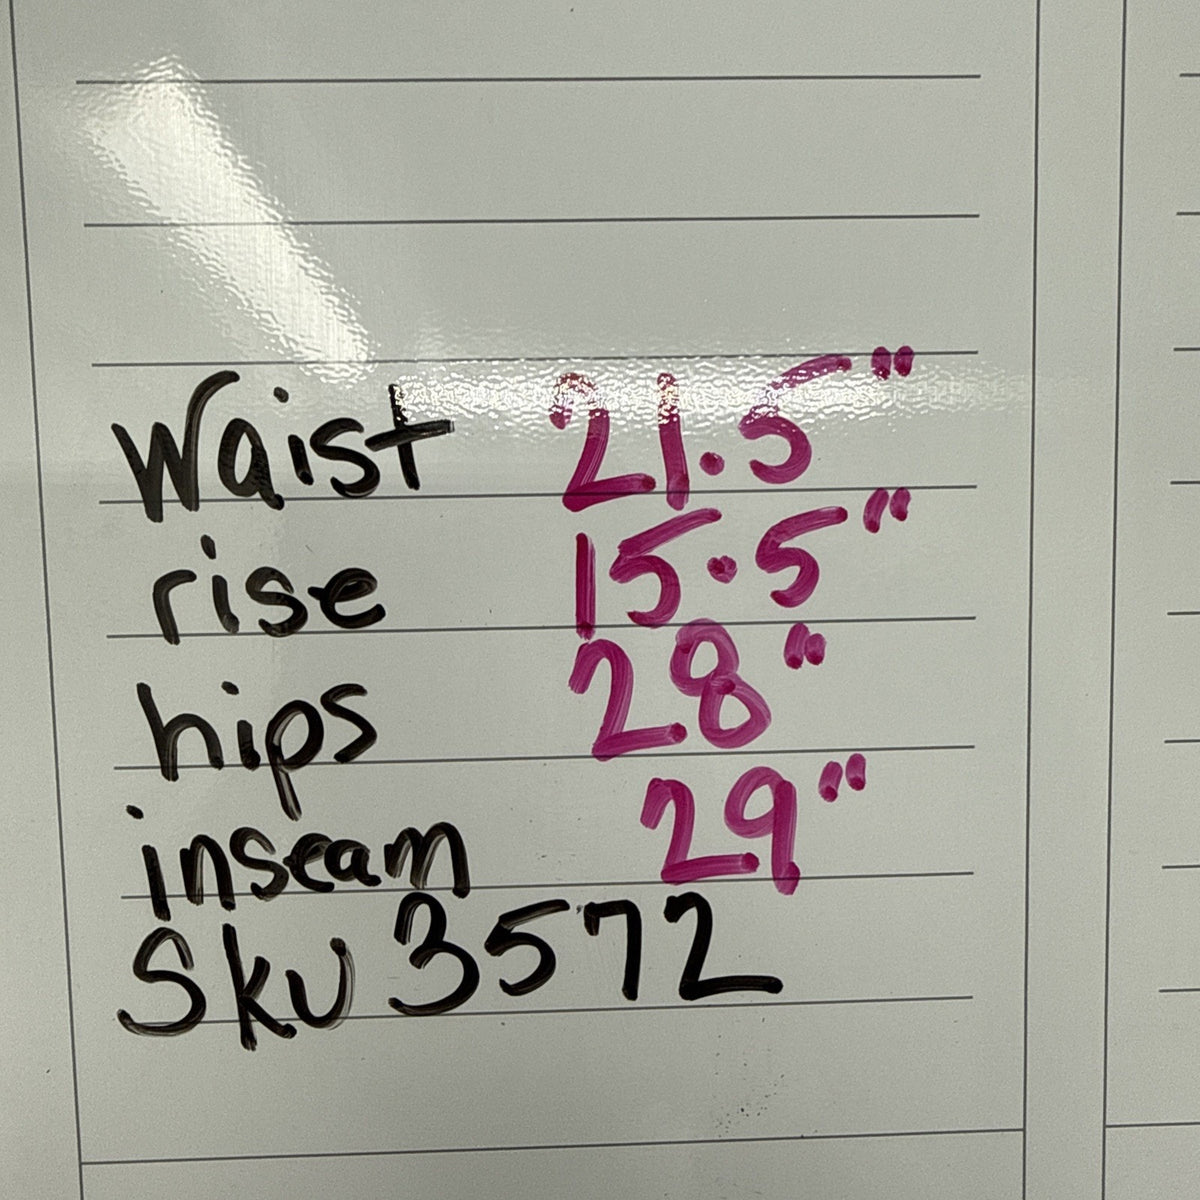 Waist 21.5"
rise 15.5"
hips 28"
inseam 29"
Sku 3572